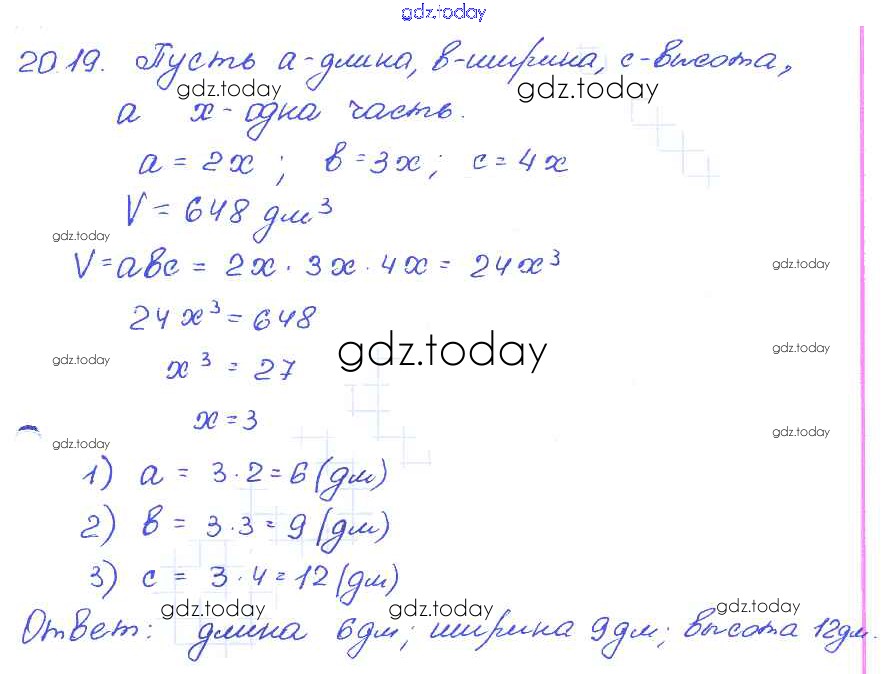 gdz.today
20.19. Пусть а-длина, в-ширина, с-высота,
gdz.today gdz.today
а х - одна часть.
a = 2x ; в = 3x ; c = 4x
V = 648 дм³
gdz.today
V = aвc = 2x · 3x · 4x = 24x³
gdz.today
24x³ = 648
gdz.today
gdz.today
gdz.today
x³ = 27
x = 3
gdz.today
gdz.today
1) a = 3·2 = 6 (дм)
2) в = 3·3 = 9 (дм)
3) c = 3·4 = 12 (дм)
gdz.today gdz.today gdz.today
Ответ: длина 6дм; ширина 9дм; высота 12дм.